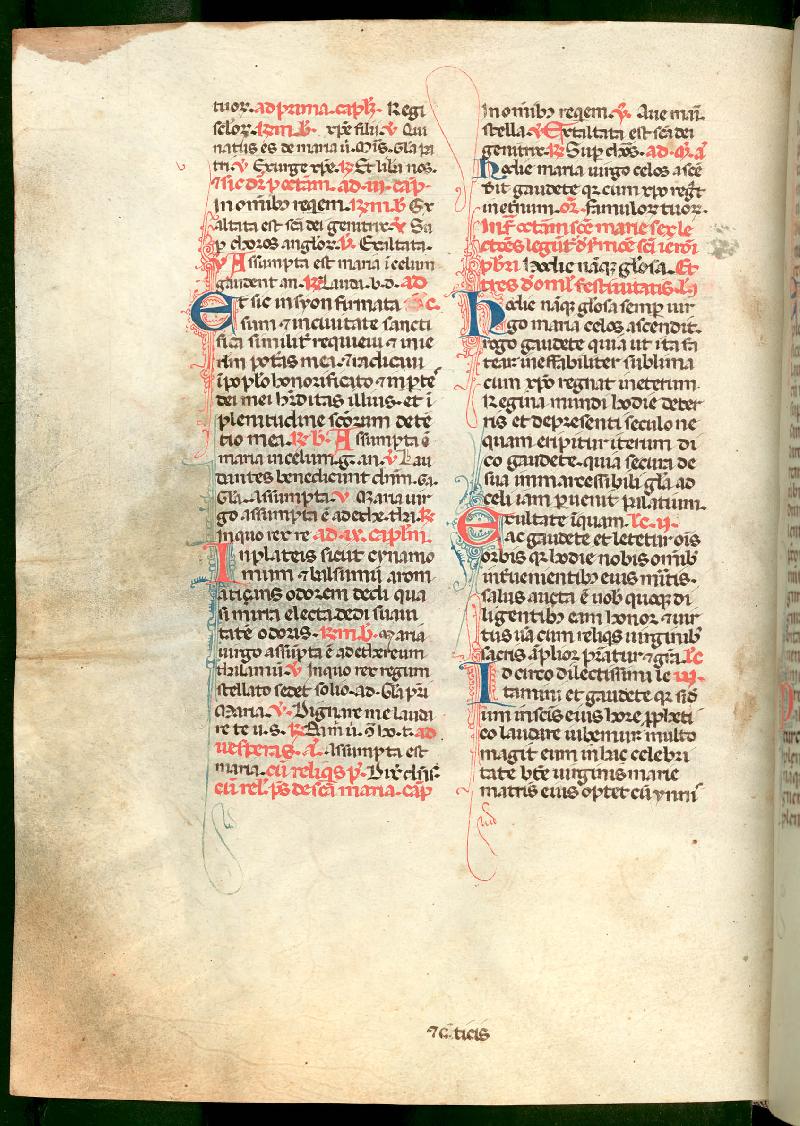 tuoꝝ. ad prima. capł. Regi
seculoꝝ. ꝶm. b. xp̄e fili. ℣ Qui
natus es de maria ū. Mis. Gła pa
tri. ℣ Exurge xp̄e. ꝶ Et liba nos.
ad. iii. cap.
In omibꝫ reqem. ꝶm. b Ex
altata est sc̄a dei genitrix. ℣ Su
p choros angloꝝ. ꝶ Exaltata.
℣ Assumpta est maria i celum
gaudent an. ꝶ Laudā. b. d. ad
Et sic in syon firmata
sum ⁊ in ciuitate sancti
ficata similit̄ requieui ⁊ in ie
rłm potas mea. ⁊ radicaui
i poplo honorificato ⁊ in pte
dei mei hr̄ditas illius. et i
plenitudine scōrum dete
tio mea. ꝶ b. Assumpta ē
maria in celum. g. an. ℣ Lau
dantes benedicunt dn̄m. Ga.
Gła. Assumpta. ℣ Maria uir
go assumpta ē ad ethe. thł. ꝶ
In quo rex re ad. ix. capłm.
In plateis sicut cynamo
mum ⁊ balsamū arom
atiçans odorem dedi qua
si mirra electa dedi suaui
tatē odoris. ꝶm. b. Maria
uirgo assūpta ē ad ethereum
thalamū. ℣ In quo rex regum
stellato sedet solio. ad. Gła pri
Maria. ℣. Dignare me lauda
re te u. s. ꝶ Da m̄ ū. 9̄ ho. t. ad
uesperas. a. Assumpta est
maria. cū reliqs p̄. Dix̄
cū rel. ps de sc̄a maria. cap
In omibꝫ reqem. ℣. Aue mar̄
stella. ℣ Exaltata est sc̄a dei
genitrix. ꝶ Sup chōs. ad. M. a
Hodie maria uirgo celos ascē
dit gaudete qꝛ cum xp̄o regt
in eternum. or̄. famuloꝝ tuoꝝ.
Infr̄ octam sc̄e marie sex le
ctōēs legūt sc̄i ieroi
p̄bri Hodie nāqꝫ głosa. Et
tres d omł festiuitatis.
Hodie nāqꝫ głosa semp uir
go maria celos ascendit.
rogo gaudete quia ut ita fa
tear ineffabiliter sublima
ta cum xp̄o regnat in eternum.
Regina mundi hodie de ter
ris et de presenti seculo ne
quam eripitur iterum di
co gaudete. quia secura de
sua immarcessibili gła ad
celi iam puenit palatium.
Exultate iquam. Lc. ii.
ac gaudete et letetur ōis
orbis qꝛ hodie nobis omibꝫ
interuenientibꝫ eius mitis.
salus aucta ē uob quoqꝫ di
ligentibꝫ eam honor ⁊ uir
tus una cum reliqs uirginibꝫ
sacris āplior pr̄atur ⁊ gr̄a. Lc
Id circo dilectissimi le iii.
tamini et gaudete qꝛ sid
um in sc̄is eius hore pphetī
co laudare iubemur multo
magis eum in hac celebri
tate btē uirginis marie
matris eius optet cū ymni
⁊ c̄ticis